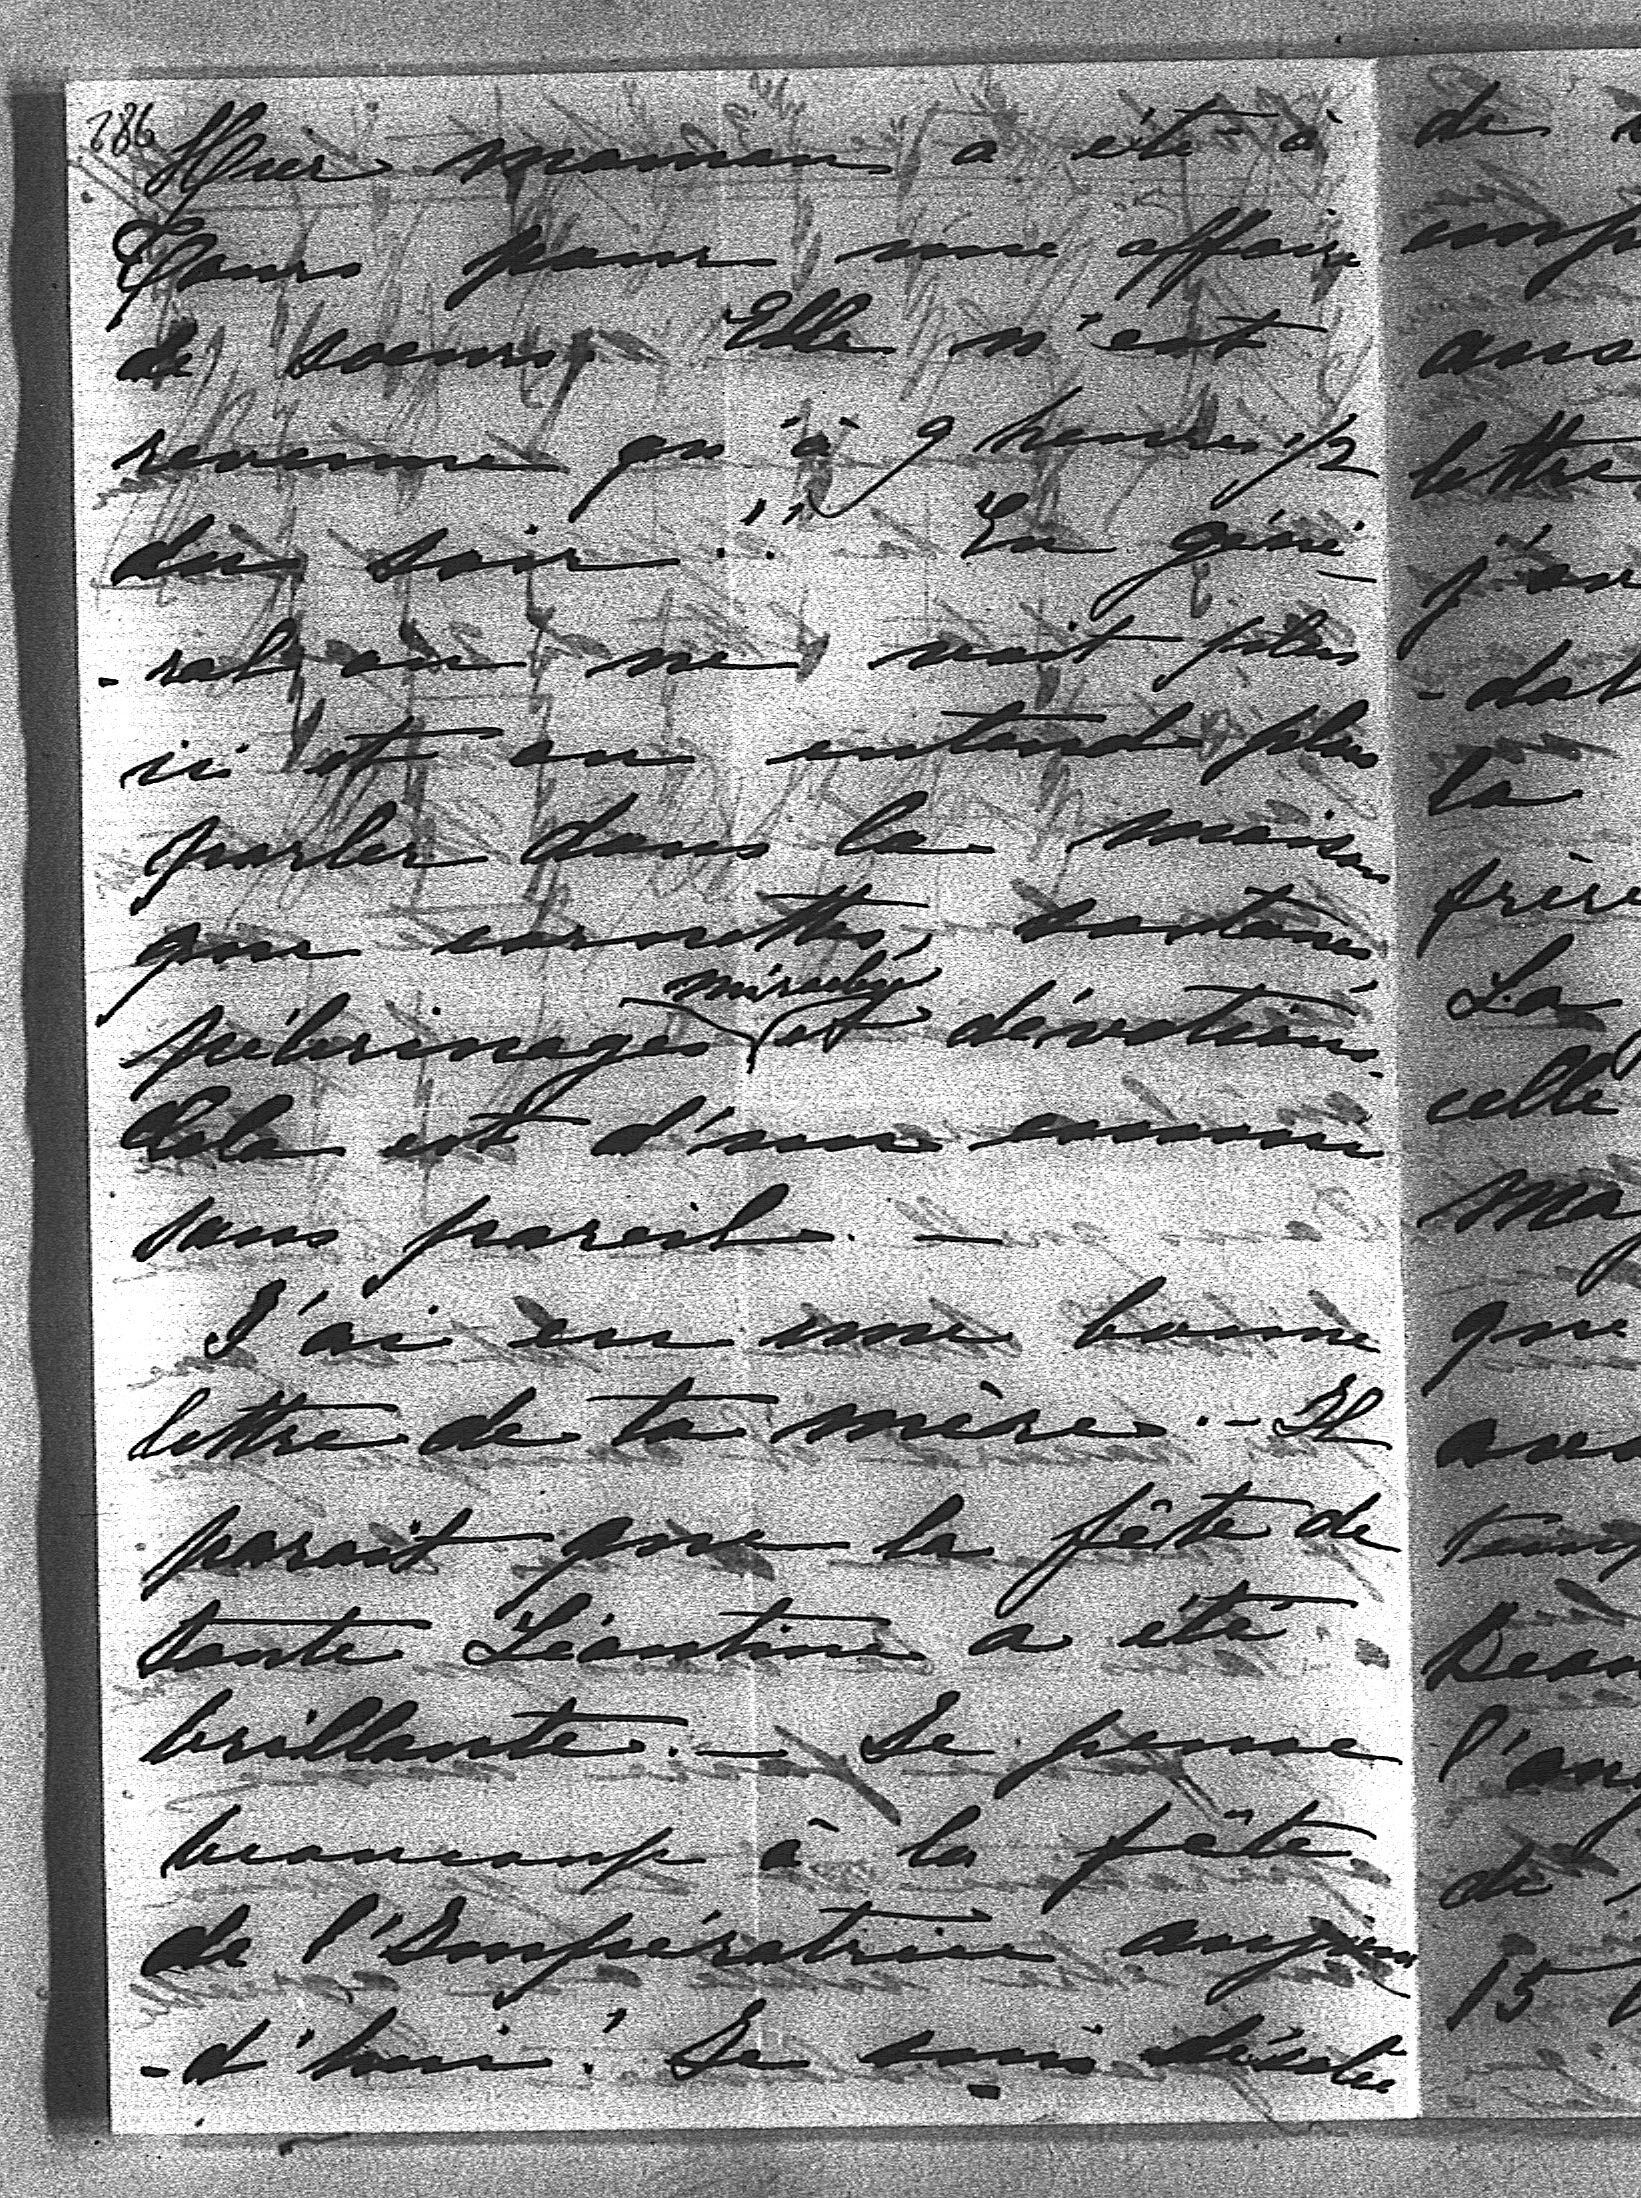 286
Hier maman a été à
Tours pour une affaire
de soeurs. Elle n'est
revenue qu'à 9 heures 1/2
du soir!!! En géné
-ral, on ne voit plus
ici et on entend plus
parler dans la maison
que cornettes,
miracles
pélerinages et dévotions.
Cela est d'un ennui
sans pareil. —
J'ai eu une bonne
lettre de ta mère. — Il
parait que la fête de
tante Léontine a été
brillante. — Je pense
beaucoup à la fête
de l'Impératrice aujour
-d'hui! Je suis désolée
de
lettre
-dab
la
frère
La
celle
que
de
15